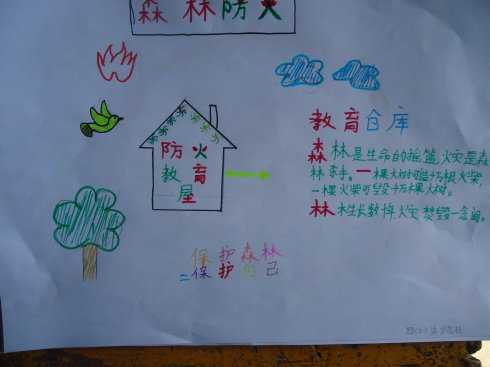 森林防火
教育仓库
防火
教育
屋
森林是生命的摇篮,火灾是森
林杀手。一棵大树 万根火柴,
一 火柴可毁十万棵树。
林木生长数十年,火灾焚毁一念间。
保护森林
=保护自己